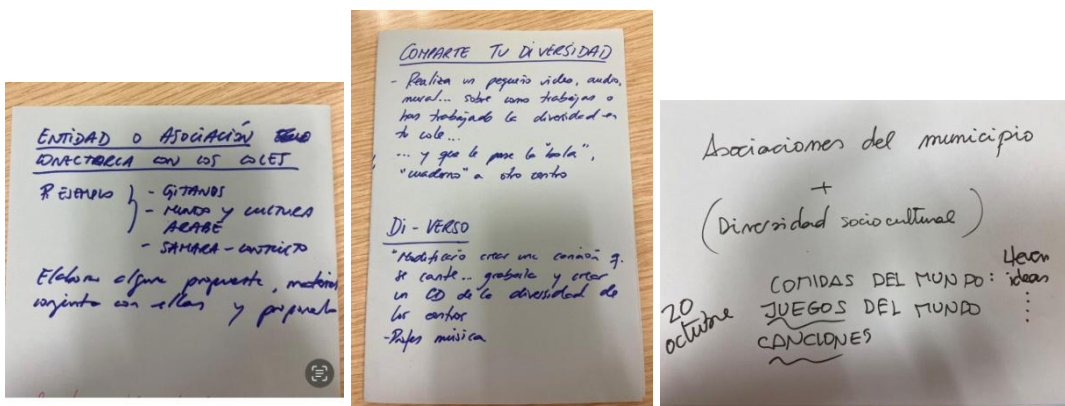 ENTIDAD O ASOCIACIÓN
CONACTARLA CON LOS COLES
P. EJEMPLO
- GITANOS
- MUNDO Y CULTURA
ARABE
- SAMARA -
Elaborar alguna propuesta, material
conjunta con ellas y
COMPARTE TU DIVERSIDAD
- Realiza un pequeño video, audio,
mural... sobre como trabajas o
has trabajado la diversidad en
tu cole...
... y que le pase la "bola",
"cuaderno" a otro centro
DI - VERSO
"Modificarlo crear una canción q.
se cante... grabarla y crear
un CD de la diversidad de
los centros
- Profes música
Asociaciones del municipio
+
(Diversidad sociocultural)
COMIDAS DEL MUNDO: 
JUEGOS DEL MUNDO
CANCIONES
llevan
ideas
20
octubre